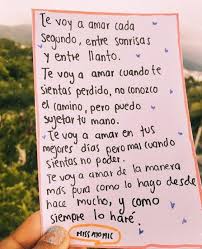 Te voy a amar cada
segundo, entre sonrisas
y entre llanto.
Te voy a amar cuando te
sientas perdido, no conozco
el camino, pero puedo
sujetar tu mano.
Te voy a amar en tus
mejores días pero mal cuando
sientas no poder.
Te voy a amar de la manera
más pura como lo hago desde
hace mucho, y como
siempre lo haré.
MISS ATOMIC